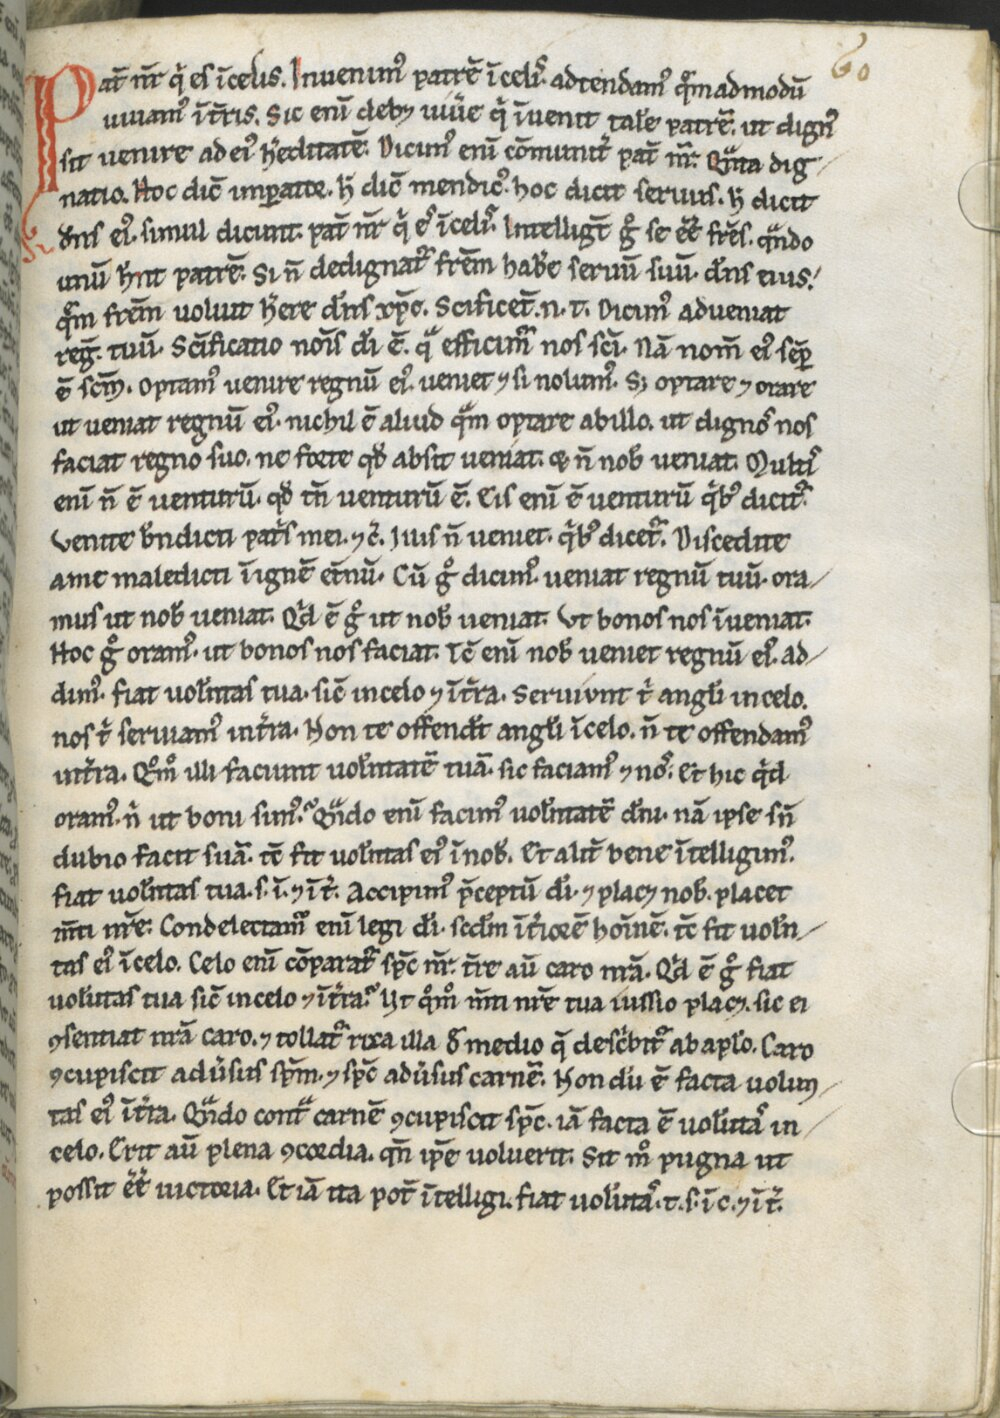 60
Pat̄ nr̄ q̇ es ı̄celis. Inuenim᷒ patrē ı̄celis. adtendam᷒ qͫmadmodū
uiuam᷒ ı̄tr̄is. Sic enī debꝫ uiu̓e q̇ ı̄uenit tal̄e patrē. ut dign᷒
sit uenire ad ei᷒ h̓editatē. Dicim᷒ enī cōmunit̓ pat̄ nr̄. Qͣnta dig
natio. Hoc dic̄ imꝑator. h̄ dic̄ mendic᷒. hoc dicit seruus. h̄ dicit
dn̄s ei᷒. simul dicunt. pat̄ nr̄ q̇ es ı̄celis. Intelligt̄ gͦ se eē fr̄es. qͣndo
unū hn̄t patrē. Si n̄ dedignat̓ frēm hab̓e seruū suū. dn̄s eius.
qͫm frēm uoluit h̓ere dn̄s xp̄c. Sc̄ificet̓. n. t. Dicim᷒ adueniat
reḡ. tuū. Sc̄ificatio noı̄s dı̄ ē. qͣ efficim̓ nos sc̄i. Nā nom̄ ei᷒ sēꝑ
ē sc̄m. Optam᷒ uenire regnū ei᷒. ueniet ⁊ si nolum᷒. Sꝫ optare ⁊ orare
ut ueniat regnū ei᷒. nichil ē aliud qͣm optare ab illo. ut dignos nos
faciat regno suo. ne forte qd̄ absit ueniat. & n̄ nob̄ ueniat. Multis
enī n̄ ē uenturū. qd̄ tn̄ uenturū ē. Eis enī ē uenturū q̇b᷒ dicit̓.
Venite bn̄dicti patr̄is mei. ⁊c̄. Illis n̄ ueniet. q̇b᷒ dicet̓. Discedite
a me maledicti ı̄ ignē et̄nū. Cū gͦ dicim᷒. ueniat regnū tuū. ora
mus ut nob̄ ueniat. Qͥd ē gͦ ut nob̄ ueniat. Vt bonos nos ı̄ueniat.
Hoc gͦ oram᷒. ut bonos nos faciat. Tc̄ enī nob̄ ueniet regnū ei᷒. ad
dim᷒. fiat uolūtas tua. sic̄ in celo ⁊ ı̄ tr̄a. Seruiunt t̓ angl̄i in celo.
nos t̓ seruiam᷒ in tr̄a. Non te offendt̄ angl̄i ı̄ celo. n̄ te offendam᷒
in tr̄a. Qͦmͦ illi faciunt uolūtatē tuā. sic faciam᷒ ⁊ nos. Et hic qͥd
oram᷒. n̄ ut boni sim᷒. Qͣndo enī facim᷒ uolūtatē dn̄i. nā ipse sn̄
dubio facit suā. tc̄ fit uolūtas ei᷒ ı̄ nob̄. Et alit̓ bene ı̄telligim᷒.
fiat uolūtas tua. s. ı̄. ⁊ ı̄ t̓. Accipim᷒ p̄ceptū dı̄. ⁊ placꝫ nob̄. placet
m̄ti nr̄e. Condelectam̓ enī legi dı̄. scdm̄ ı̄t̓iorē hoı̄nē. tc̄ fit uolū
tas ei᷒ ı̄ celo. Celo enī cōparat̓ sp̄c nr̄. tr̄e aū caro nr̄a. Qͥd ē gͦ fiat
uolūtas tua sic̄ in celo ⁊ ı̄ tr̄a. Ut qͦmͦ m̄ti nr̄e tua iussio placꝫ. sic ei
ꝯsentiat nr̄a caro. ⁊ tollat̓ rixa illa đ medio q̄ desc̓bit̓ ab apl̄o. Caro
ꝯcupiscit adu̓sus sp̄m. ⁊ sp̄c adu̓sus carnē. Non dū ē facta uolun
tas ei᷒ ı̄ tr̄a. Qͣndo contͣ carnē ꝯcupiscit sp̄c. iā facta ē uolūtas in
celo. Erit aū plena ꝯcordia. qn̄ ip̄e uoluerit. Sit mͦ pugna ut
possit eē uictoria. Et iā ita pot̄ ı̄telligi. fiat uolūtas. t. s. ı̄ c. ⁊ ı̄ t̓.